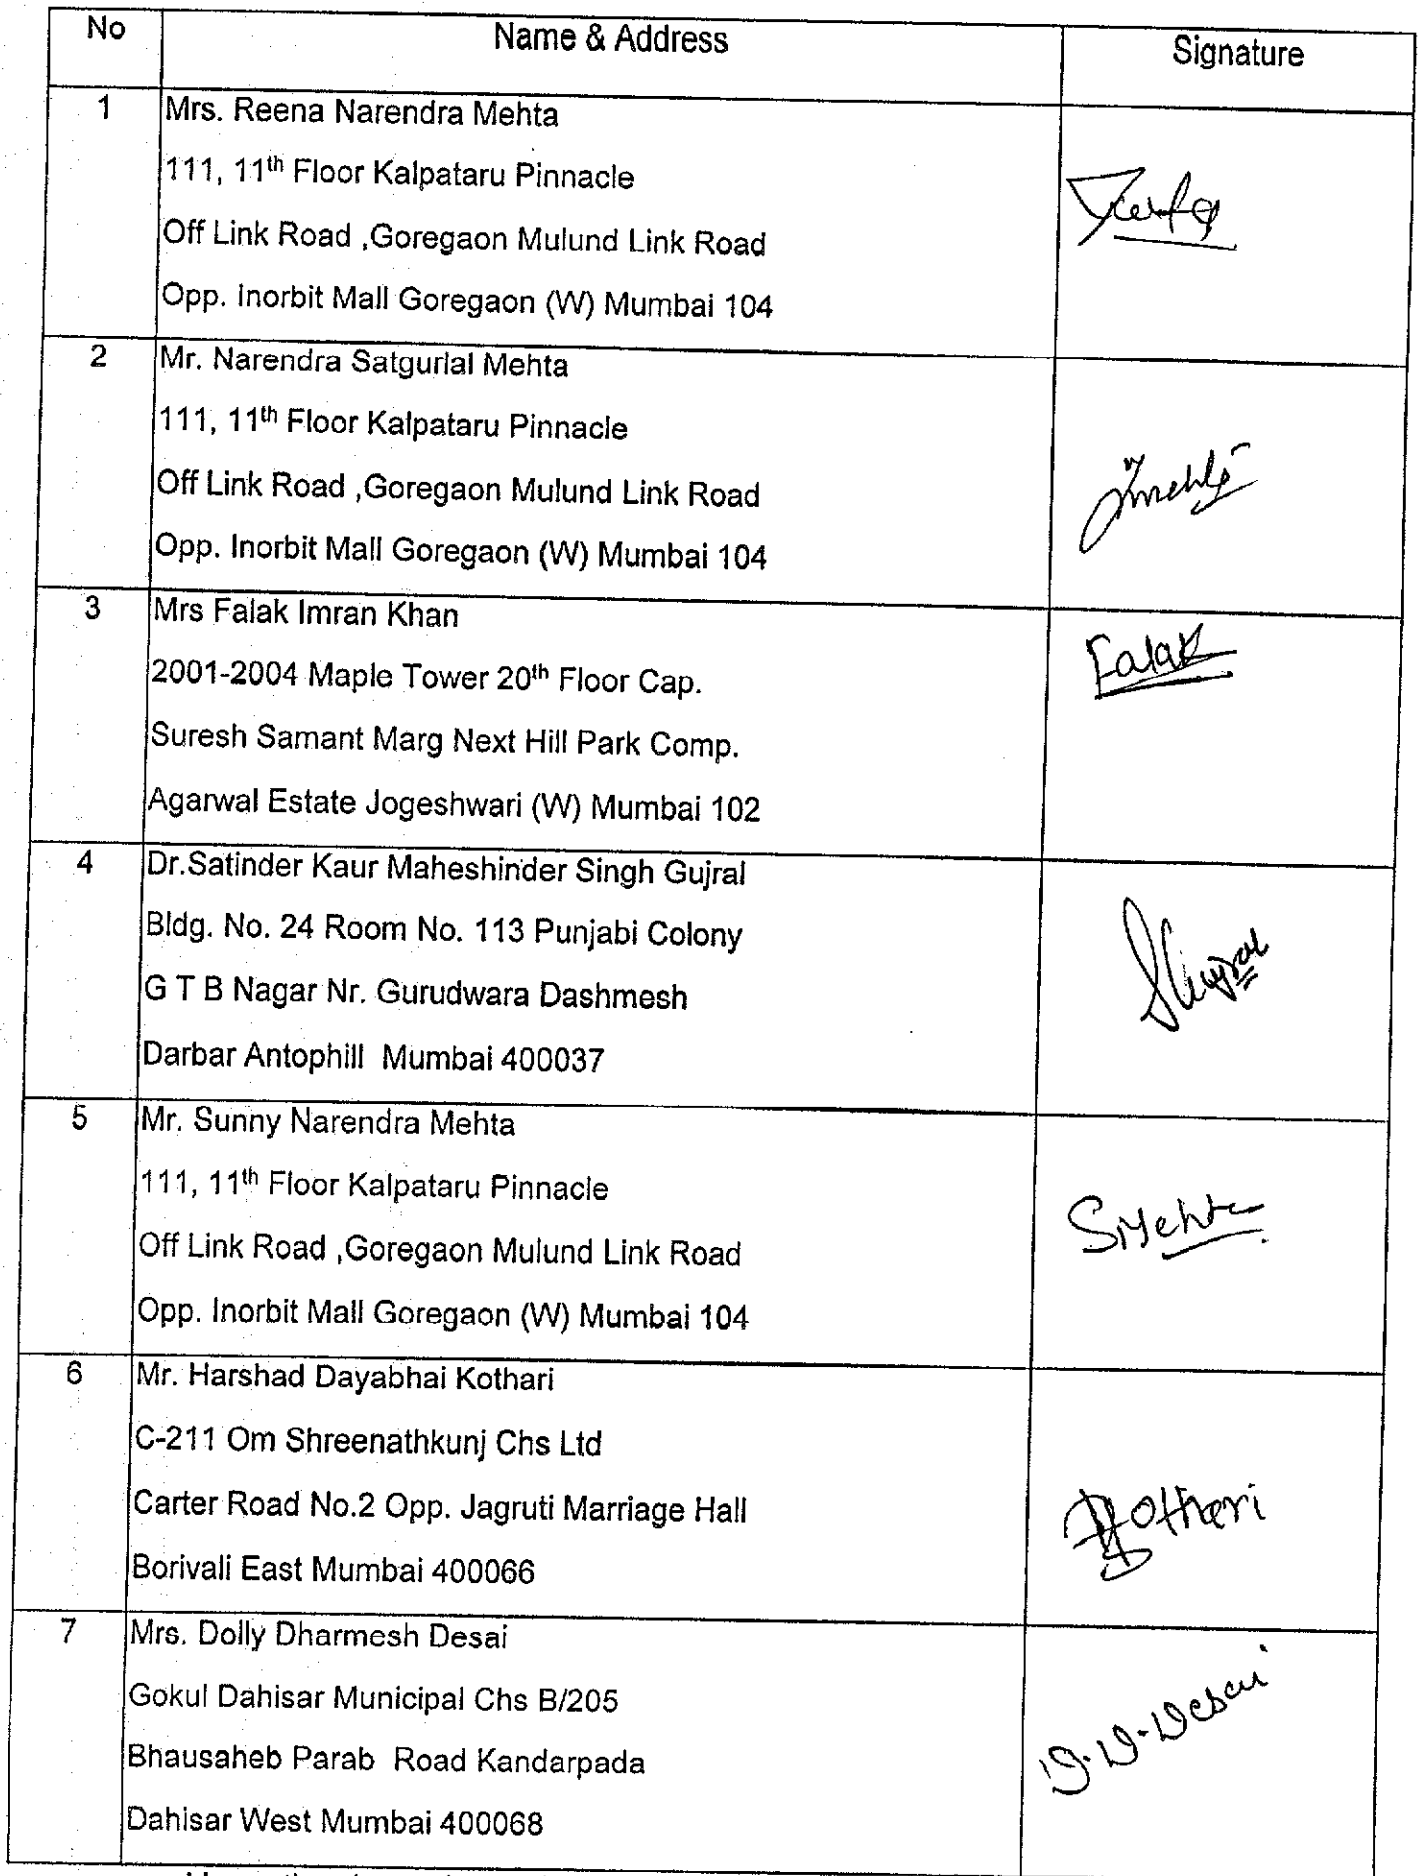 No Name & Address Signature
1 Mrs. Reena Narendra Mehta
111, 11th Floor Kalpataru Pinnacle
Off Link Road ,Goregaon Mulund Link Road
Opp. Inorbit Mall Goregaon (W) Mumbai 104
2 Mr. Narendra Satgurlal Mehta
111, 11th Floor Kalpataru Pinnacle
Off Link Road ,Goregaon Mulund Link Road
Opp. Inorbit Mall Goregaon (W) Mumbai 104
3 Mrs Falak Imran Khan
Falak
2001-2004 Maple Tower 20th Floor Cap.
Suresh Samant Marg Next Hill Park Comp.
Agarwal Estate Jogeshwari (W) Mumbai 102
4 Dr.Satinder Kaur Maheshinder Singh Gujral
Bldg. No. 24 Room No. 113 Punjabi Colony
G T B Nagar Nr. Gurudwara Dashmesh
SGujral
Darbar Antophill Mumbai 400037
5 Mr. Sunny Narendra Mehta
111, 11th Floor Kalpataru Pinnacle
SMehta
Off Link Road ,Goregaon Mulund Link Road
Opp. Inorbit Mall Goregaon (W) Mumbai 104
6 Mr. Harshad Dayabhai Kothari
C-211 Om Shreenathkunj Chs Ltd
Carter Road No.2 Opp. Jagruti Marriage Hall
Borivali East Mumbai 400066
7 Mrs. Dolly Dharmesh Desai
Gokul Dahisar Municipal Chs B/205
D.D.Desai
Bhausaheb Parab Road Kandarpada
Dahisar West Mumbai 400068